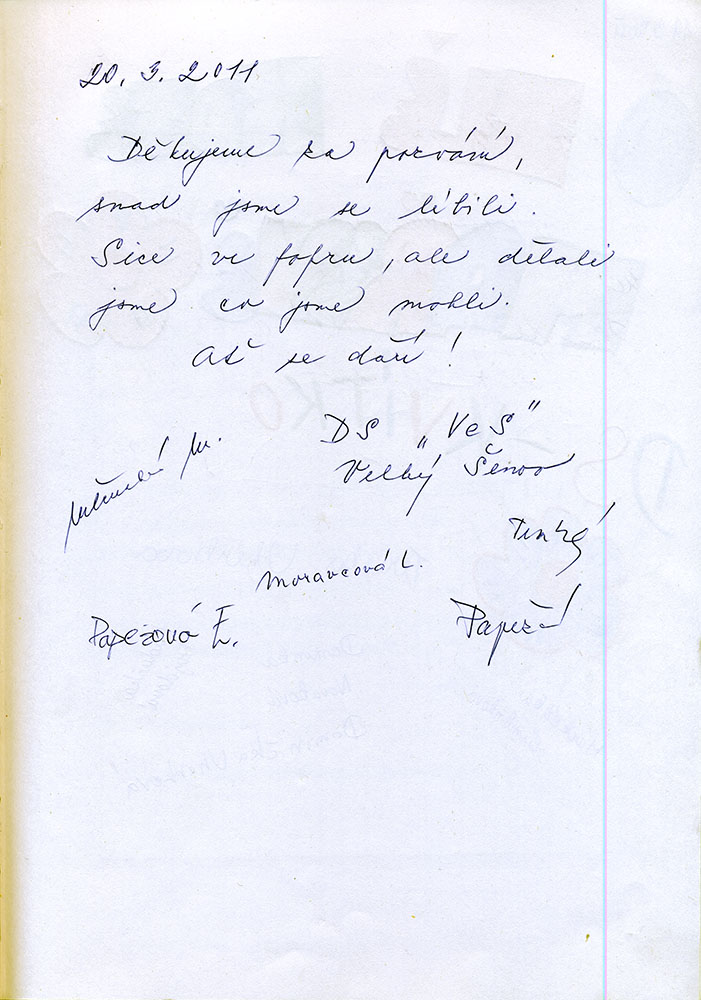 20. 3. 2011
Děkujeme za pozvání,
snad jsme se líbili.
Sice ve fofru, ale dělali
jsme co jsme mohli.
Ať se daří!
DS „VeS"
Velký Šenov
Moravcová L.
Papežová E.